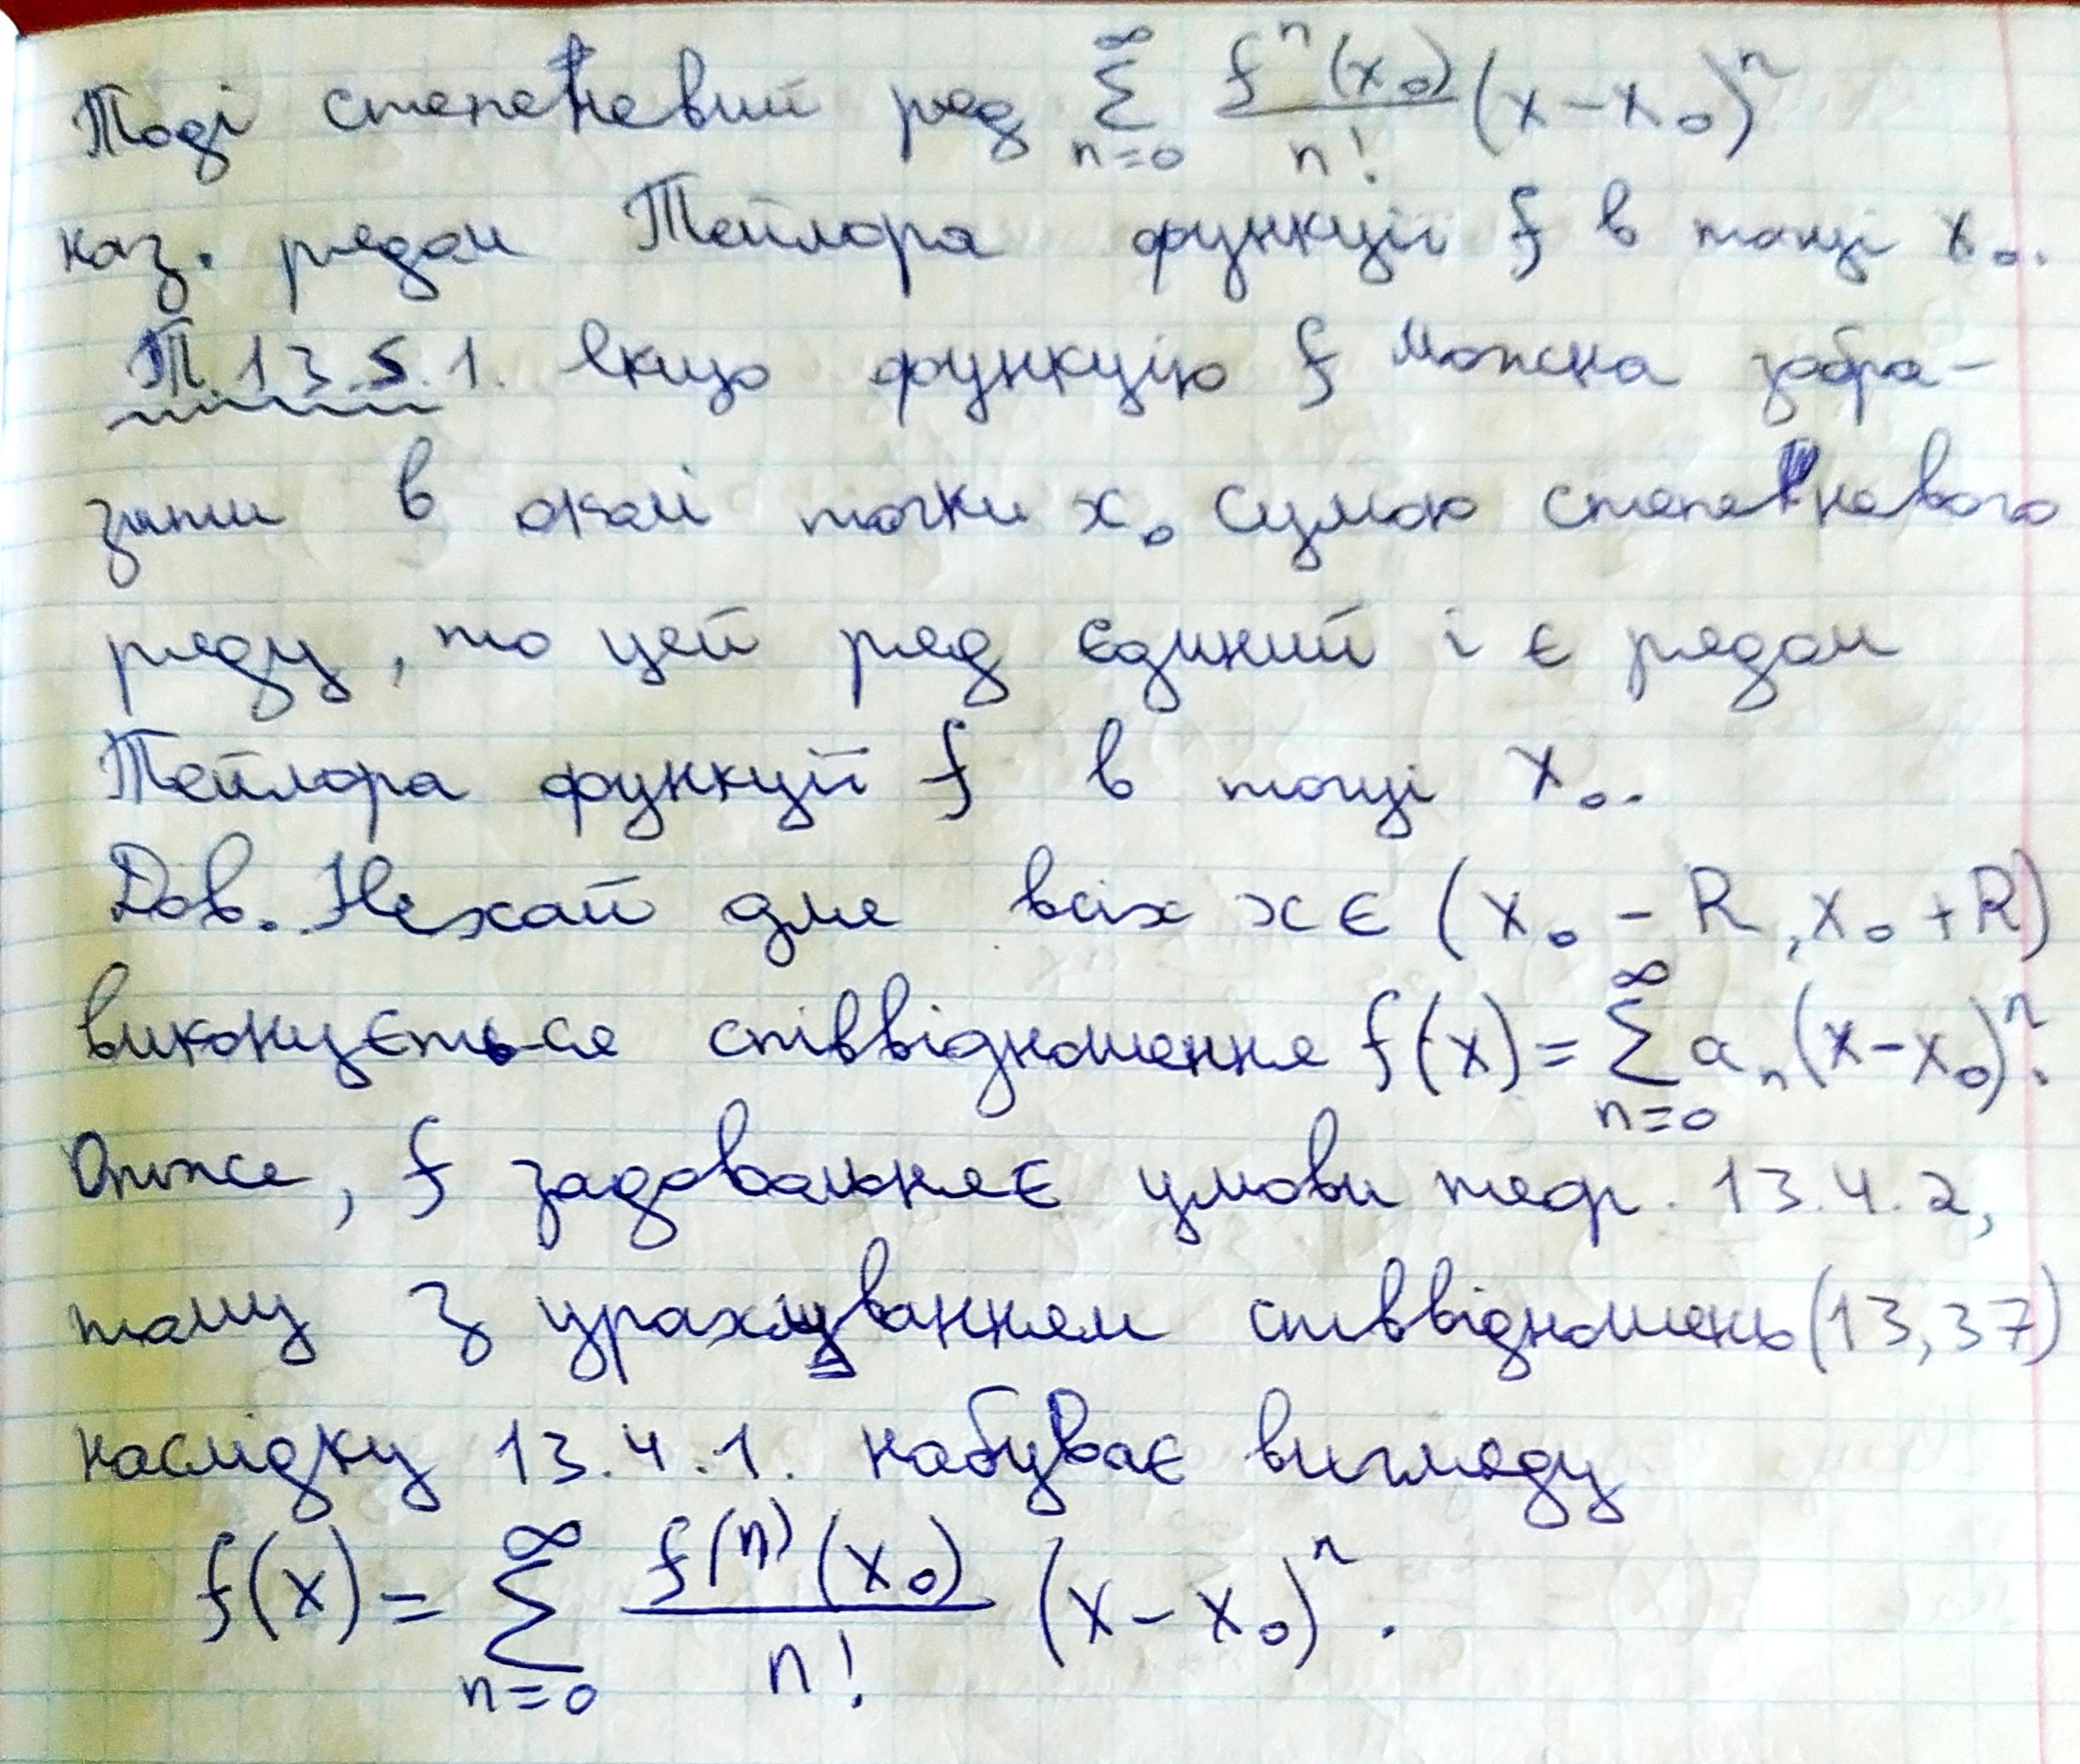 Тоді степеневий ряд $\sum_{n=0}^{\infty} \frac{f^n(x_0)}{n!}(x-x_0)^n$
наз. рядом Тейлора функції f в точці x₀.
Т.13.5.1. Якщо функцію f можна зобра-
зити в околі точки x₀ сумою степеневого
ряду, то цей ряд єдиний і є рядом
Тейлора функції f в точці x₀.
Дов. Нехай для всіх x ∈ (x₀ - R, x₀ + R)
виконується співвідношення $f(x) = \sum_{n=0}^{\infty} a_n(x-x_0)^n$.
Отже, f задовольняє умови теор. 13.4.2,
тому з урахуванням співвідношень (13,37)
наслідку 13.4.1. набуває вигляду
$f(x) = \sum_{n=0}^{\infty} \frac{f^{(n)}(x_0)}{n!}(x-x_0)^n$.